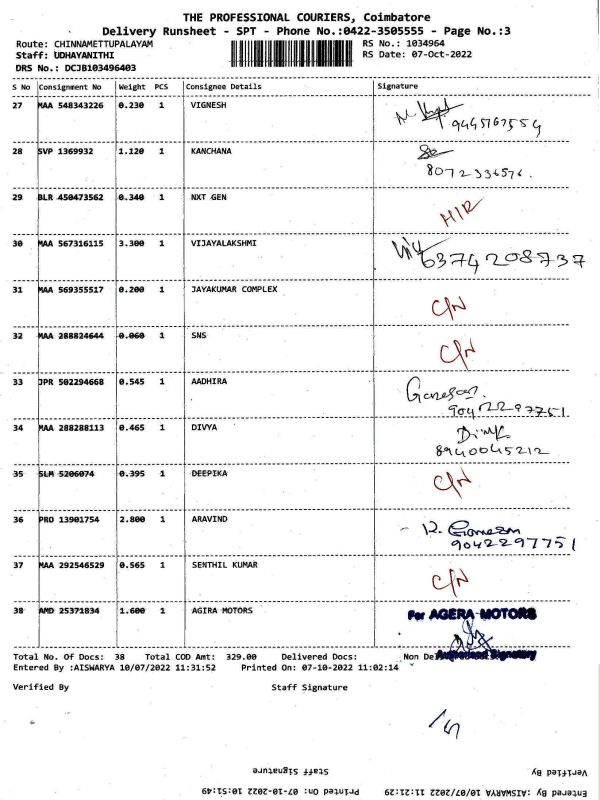 THE PROFESSIONAL COURIERS, Coimbatore
Delivery Runsheet - SPT - Phone No.:0422-3505555 - Page No.:3
Route: CHINNAMETTUPALAYAM RS No.: 1034964
Staff: UDHAYANITHI RS Date: 07-Oct-2022
DRS No.: DCJB103496403
S No Consignment No Weight PCS Consignee Details Signature
27 MAA 548343226 0.230 1 VIGNESH
9445767554
28 SVP 1369932 1.120 1 KANCHANA
8072336576.
29 BLR 450473562 0.340 1 NXT GEN
30 MAA 567316115 3.300 1 VIJAYALAKSHMI 6374208737
31 MAA 569355517 0.200 1 JAYAKUMAR COMPLEX C/N
32 MAA 288824644 0.060 1 SNS C/N
33 JPR 502294668 0.545 1 AADHIRA Ganesan.
9042297751
34 MAA 288288113 0.465 1 DIVYA
8940045212
35 SLM 5206074 0.395 1 DEEPIKA C/N
36 PRO 13901754 2.800 1 ARAVIND R. Ganesan
9042297751
37 MAA 292546529 0.565 1 SENTHIL KUMAR C/N
38 AMD 25371834 1.600 1 AGIRA MOTORS For AGERA MOTORS
Total No. Of Docs: 38 Total COD Amt: 329.00 Delivered Docs: Non Authorised Signatory
Entered By :AISWARYA 10/07/2022 11:31:52 Printed On: 07-10-2022 11:02:14
Verified By Staff Signature
Verified By Staff Signature
Entered By :AISWARYA 10/07/2022 11:21:29 Printed On: 07-10-2022 10:51:49